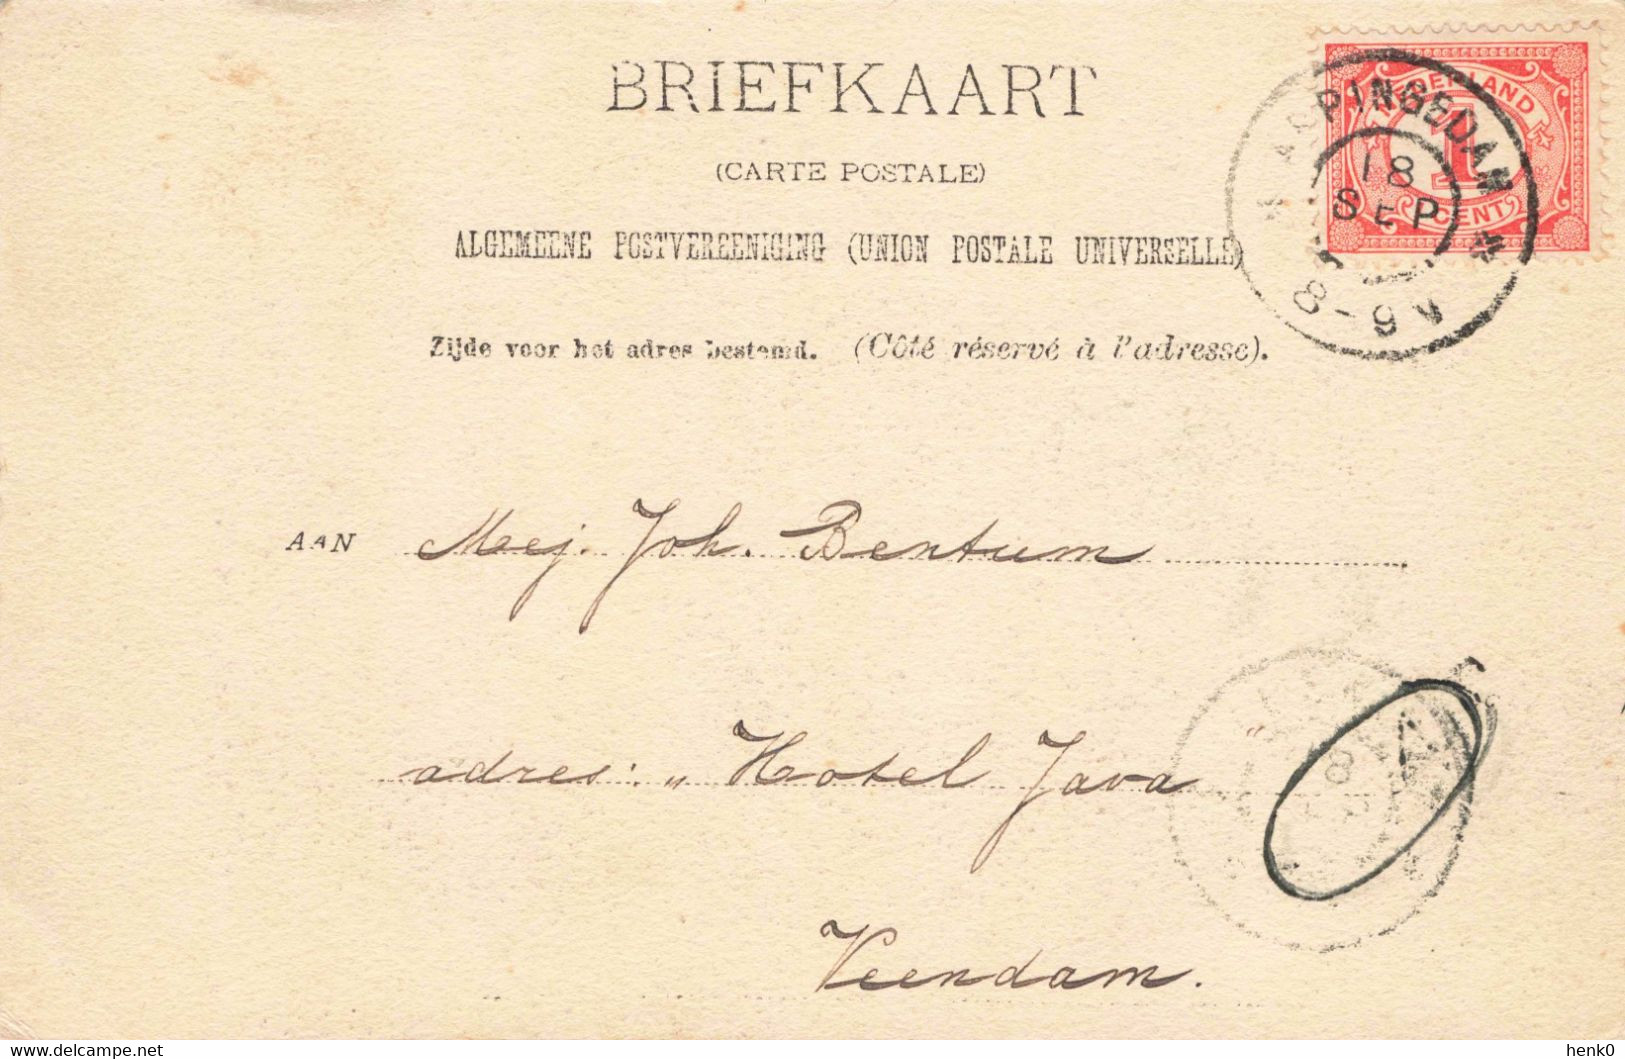 BRIEFKAART
(CARTE POSTALE)
ALGEMEENE POSTVEREENIGING (UNION POSTALE UNIVERSELLE)
Zijde voor het adres bestemd. (Côté réservé à l'adresse).
NEDERLAND
1
CENT
APPINGEDAM
18
SEP
8-9V
AAN Mej. Joh. Bentum
adres: „Hotel Java"
Veendam.
www.delcampe.net
henk0